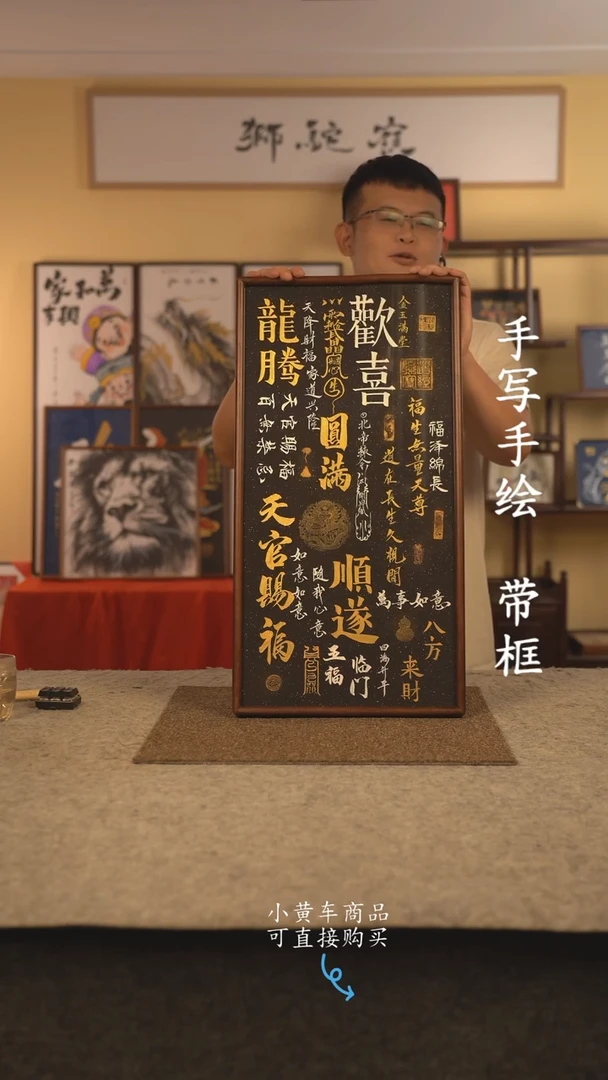 手写手绘 带框
家和萬
事興
龍騰
天降財福家道兴隆
天官賜福
百無禁忌
天官賜福
如意如意
隨我心意
圓滿
歡喜
金玉满堂
福生無量天尊
道在長生久視間
福泽綿長
順遂
萬事如意
八方
来財
五福
临门
四海升平
小黄车商品
可直接购买